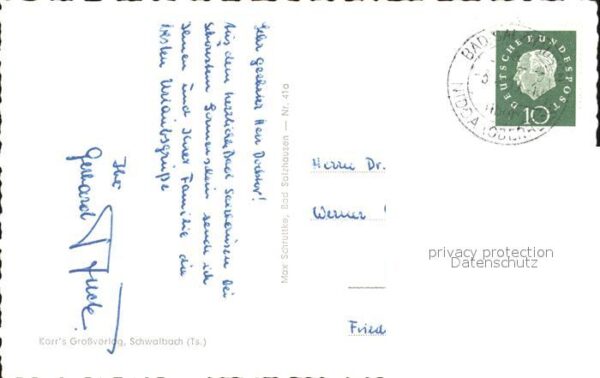 Sehr geehrter Herr Doktor!
Aus dem herrlichen Bad Salzhausen bei
schönstem Sonnenschein sende ich
Ihnen und Ihrer Familie die
besten Urlaubsgrüße
Ihr
Gerhard
Max Schruttke, Bad Salzhausen — Nr. 41a
Korr's Großverlag, Schwalbach (Ts.)
BAD SAL
NIDDA (OBERH
DEUTSCHE BUNDESPOST
10
Herrn Dr.
Werner
Fried
privacy protection
Datenschutz